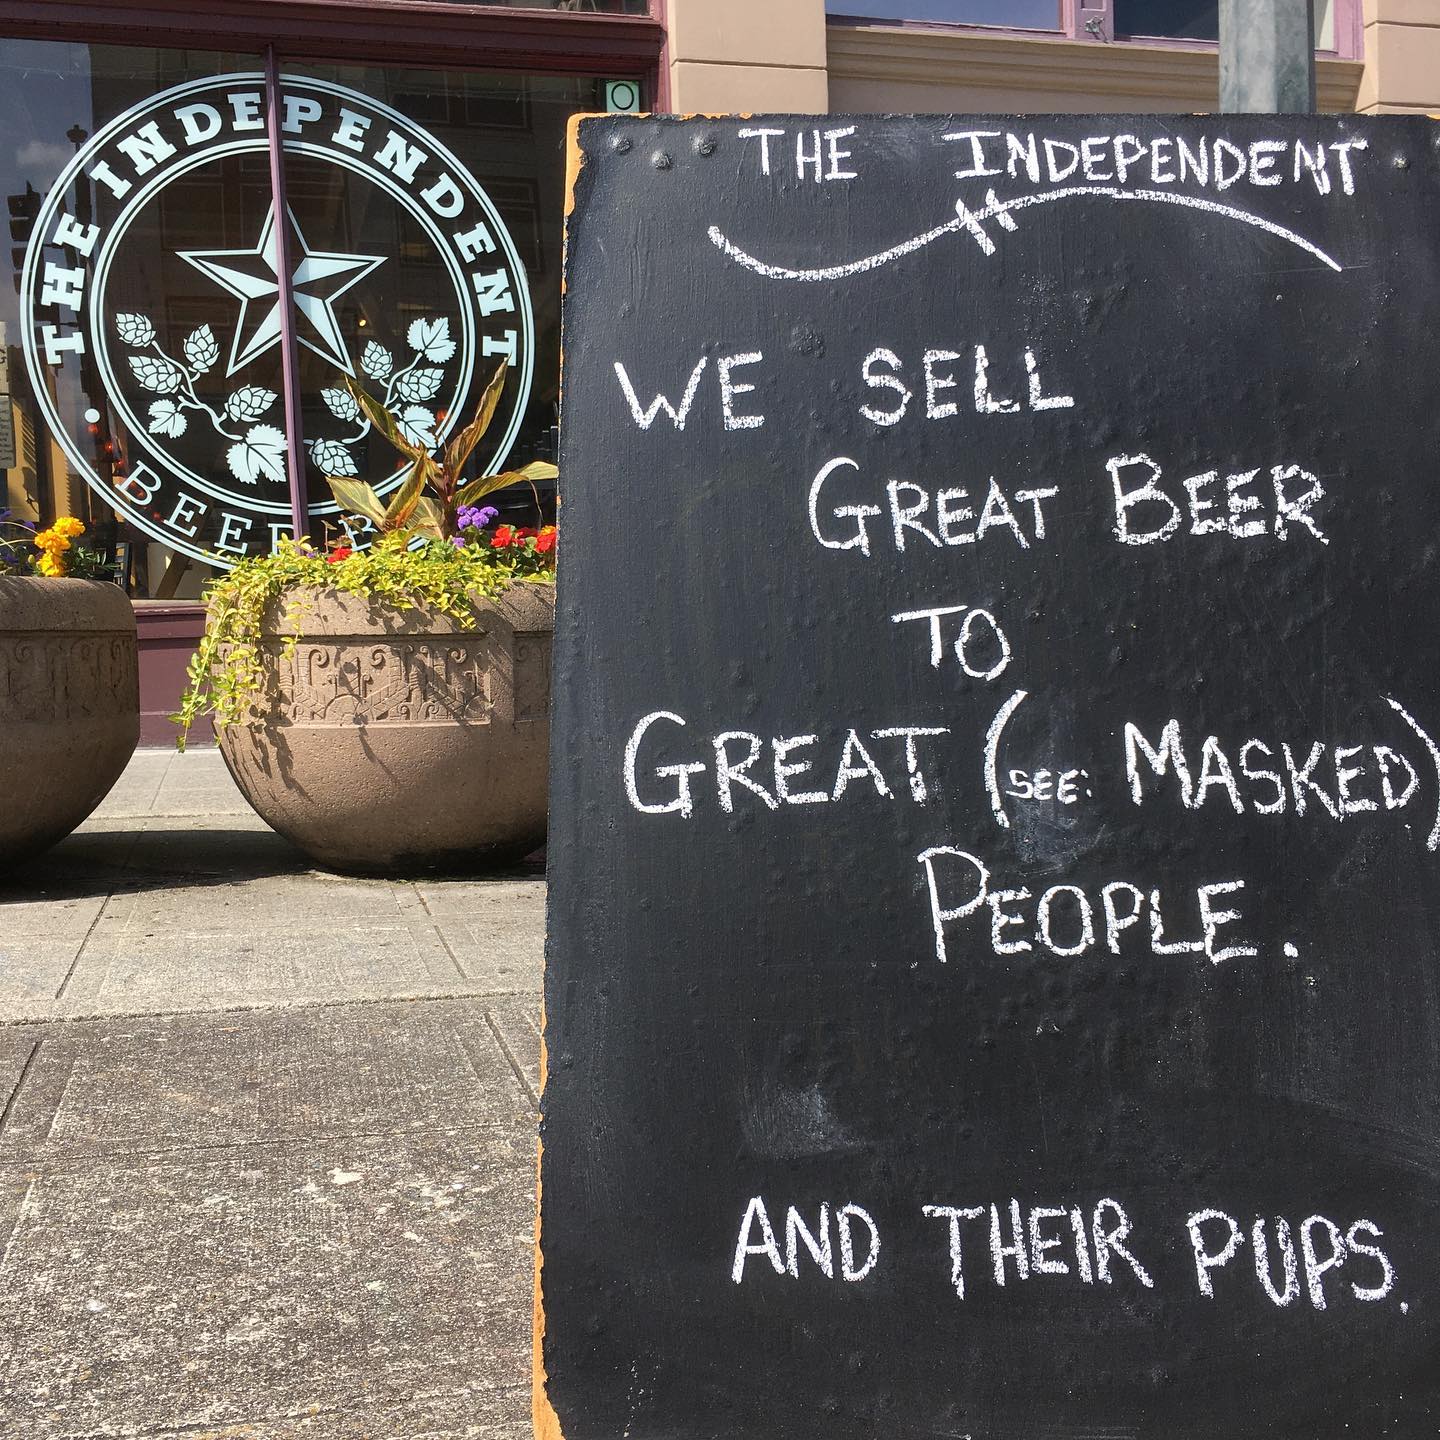 THE INDEPENDENT
BEER B
THE INDEPENDENT
WE SELL
GREAT BEER
TO
GREAT (SEE: MASKED)
PEOPLE.
AND THEIR PUPS.